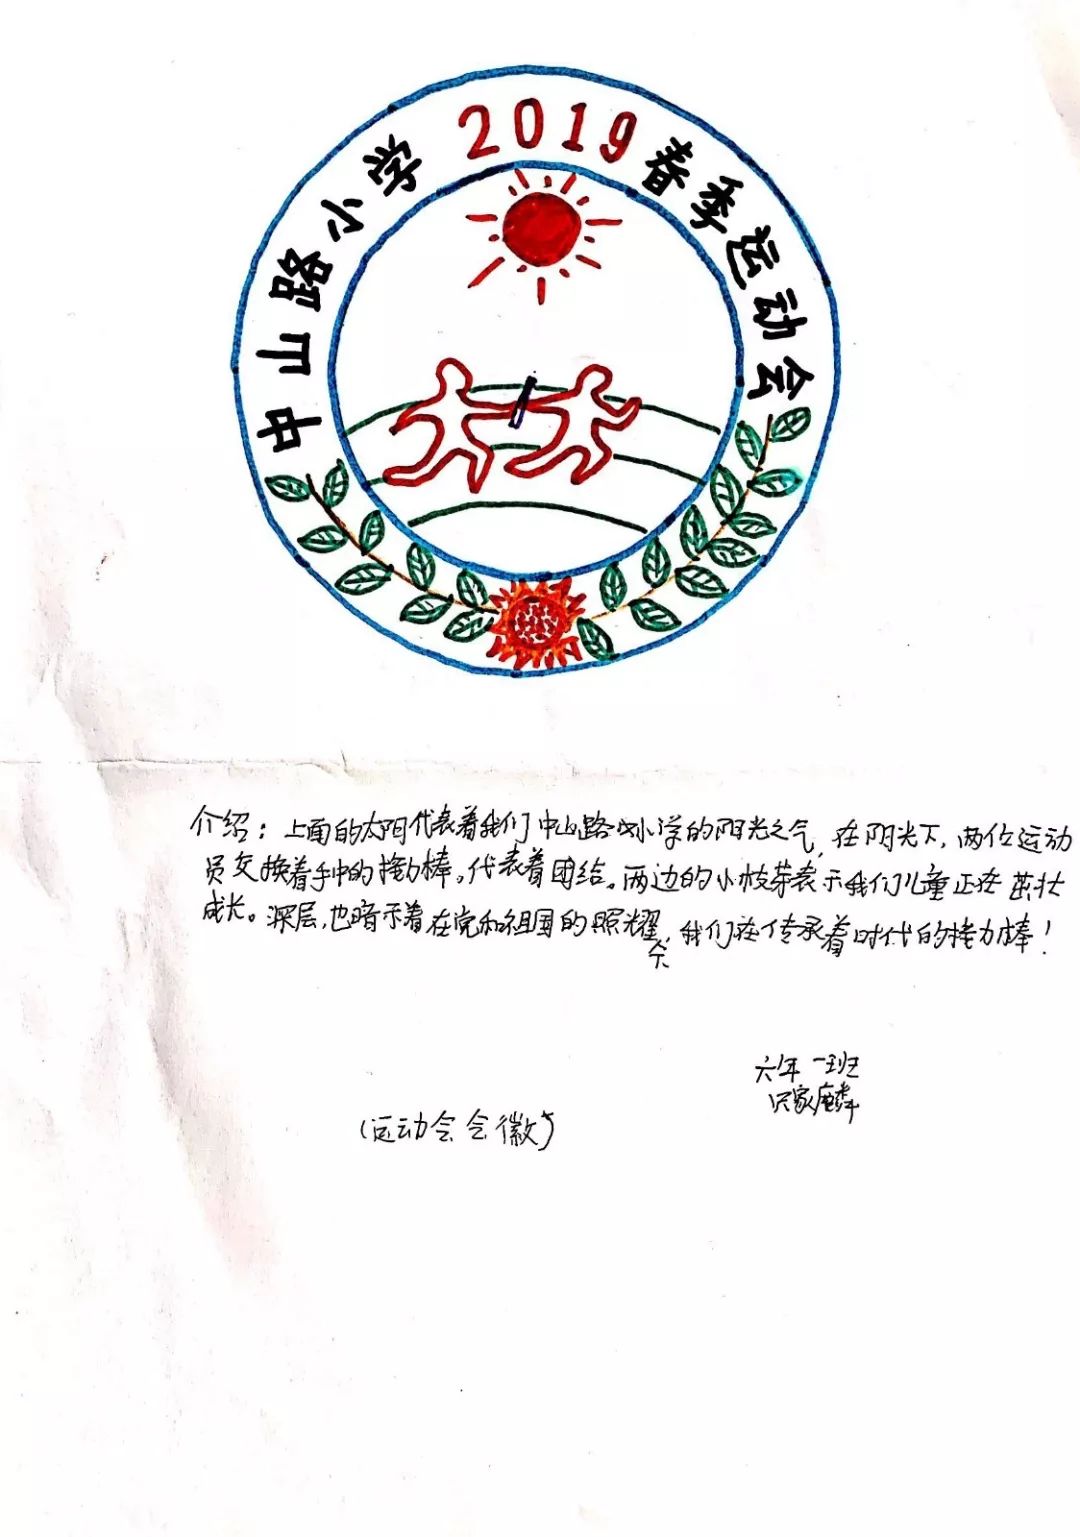 中山路小学 2019 春季运动会
介绍：上面的太阳代表着我们中山路小学的阳光之气，在阳光下，两位运动
员交换着手中的接力棒。代表着团结。两边的小枝芽表示我们儿童正在茁壮
成长。深层，也暗示着在党和祖国的照耀下，我们在传承着时代的接力棒！
六年一班
家麟
（运动会会徽）